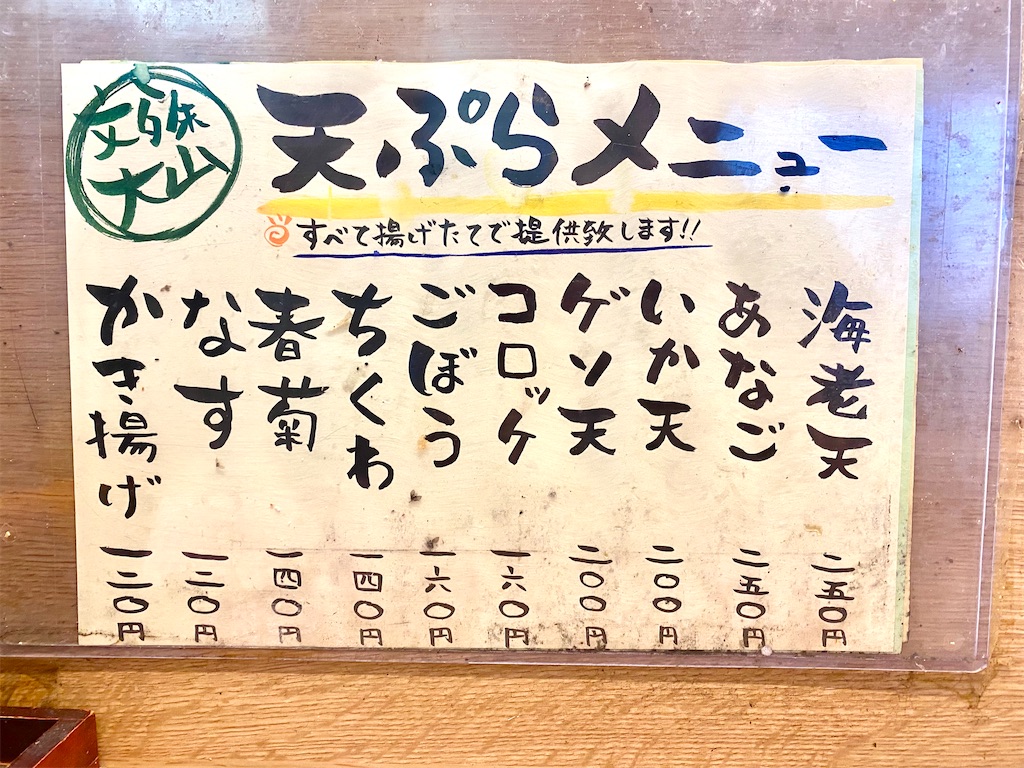 大山
天ぷらメニュー
すべて揚げたてで提供致します!!
海老天 二五〇円
あなご 二五〇円
いか天 二〇〇円
ゲソ天 二〇〇円
コロッケ 一六〇円
ごぼう 一六〇円
ちくわ 一四〇円
春菊 一四〇円
なす 一二〇円
かき揚げ 一二〇円